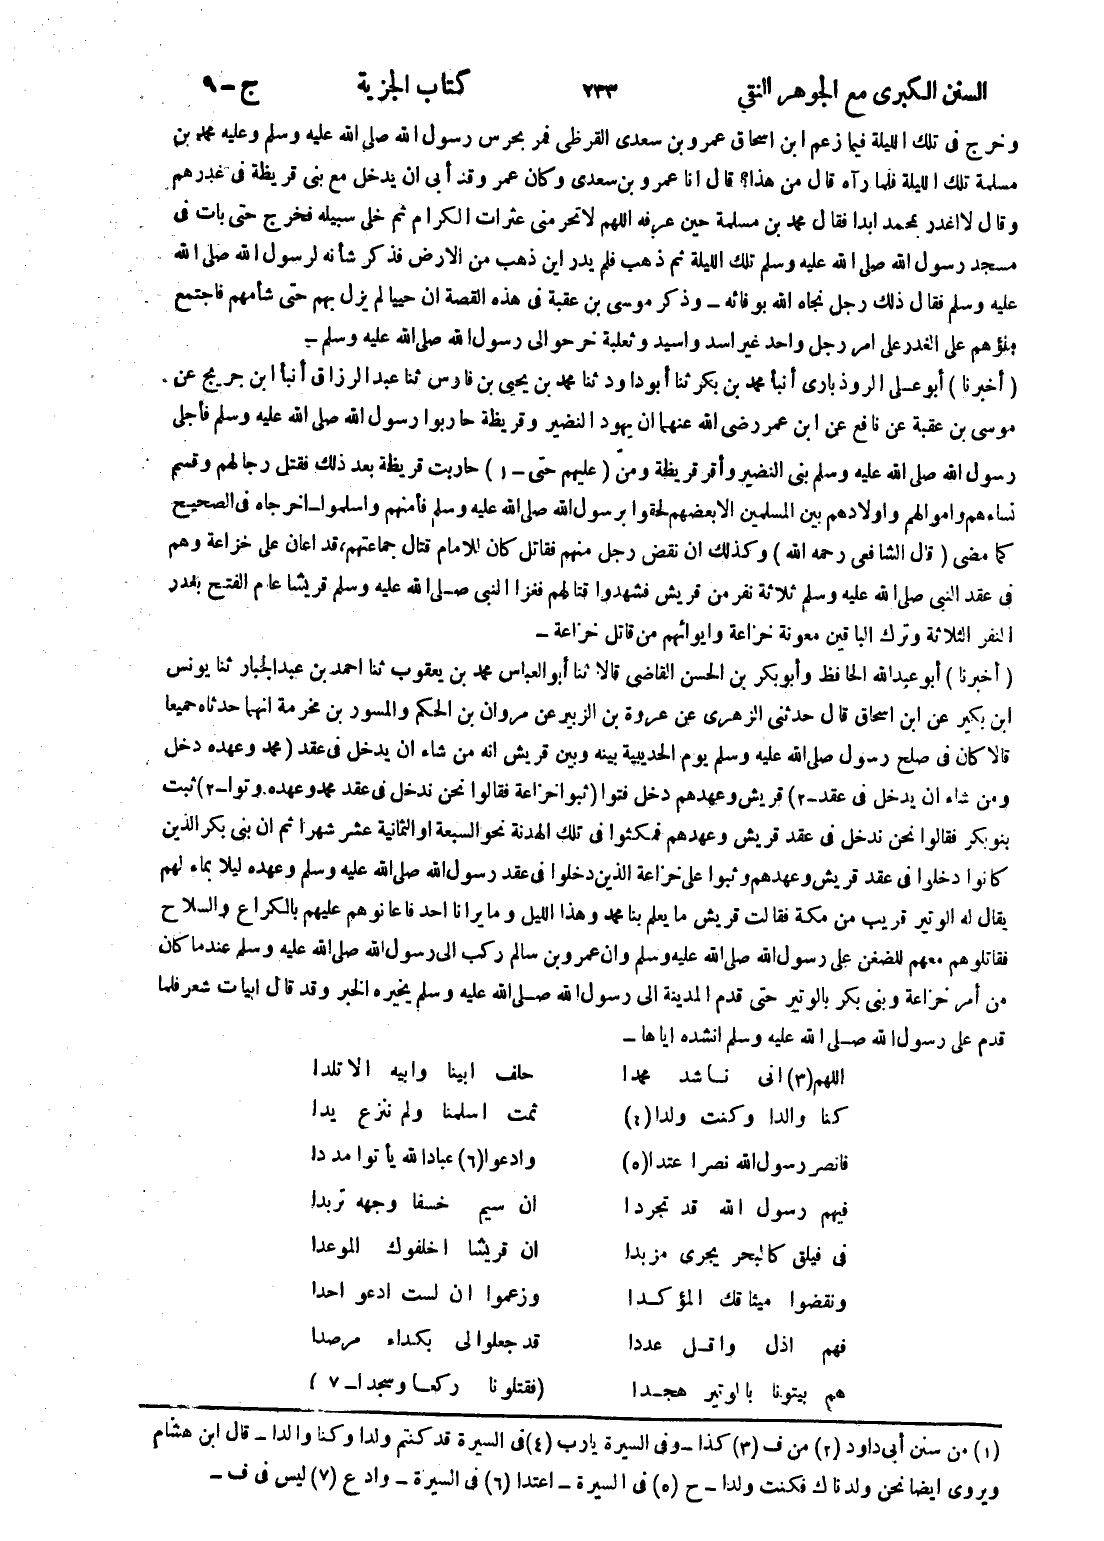 السنن الكبرى مع الجوهر النقي ٢٣٣ كتاب الجزية ج-٩
وخرج فى تلك الليلة فيما زعم ابن اسحاق عمرو بن سعدى القرظى فمر بحرس رسول الله صلى الله عليه وسلم وعليه محمد بن
مسلمة تلك الليلة فلما رآه قال من هذا؟ قال انا عمرو بن سعدى وكان عمرو قد أبى ان يدخل مع بنى قريظة فى غدرهم
وقال لا اغدر بمحمد ابدا فقال محمد بن مسلمة حين عرفه اللهم لا تحرمنى عثرات الكرام ثم خلى سبيله فخرج حتى بات فى
مسجد رسول الله صلى الله عليه وسلم تلك الليلة ثم ذهب فلم يدر اين ذهب من الارض فذكر شأنه لرسول الله صلى الله
عليه وسلم فقال ذلك رجل نجاه الله بوفائه - وذكر موسى بن عقبة فى هذه القصة ان حييا لم يزل بهم حتى شأمهم فاجتمع
ملؤهم على الغدر على امر رجل واحد غير اسد واسيد وثعلبة خرجوا الى رسول الله صلى الله عليه وسلم -
( أخبرنا ) أبو على الروذبارى أنبأ محمد بن بكر ثنا أبو داود ثنا محمد بن يحيى بن فارس ثنا عبد الرزاق أنبأ ابن جريج عن
موسى بن عقبة عن نافع عن ابن عمر رضى الله عنهما ان يهود النضير وقريظة حاربوا رسول الله صلى الله عليه وسلم فأجلى
رسول الله صلى الله عليه وسلم بنى النضير وأقر قريظة ومنّ ( عليهم حتى - ١ ) حاربت قريظة بعد ذلك فقتل رجالهم وقسم
نساءهم واموالهم واولادهم بين المسلمين الا بعضهم لحقوا برسول الله صلى الله عليه وسلم فأمنهم واسلموا - اخرجاه فى الصحيح
كما مضى ( قال الشافعى رحمه الله ) وكذلك ان نقض رجل منهم فقاتل كان للامام قتال جماعتهم، قد اعان على خزاعة وهم
فى عقد النبى صلى الله عليه وسلم ثلاثة نفر من قريش فشهدوا قتالهم فغزا النبى صلى الله عليه وسلم قريشا عام الفتح بغدر
النفر الثلاثة وترك الباقين معونة خزاعة وايوائهم من قاتل خزاعة -
( أخبرنا ) أبو عبد الله الحافظ وأبو بكر بن الحسن القاضى قالا ثنا أبو العباس محمد بن يعقوب ثنا احمد بن عبد الجبار ثنا يونس
ابن بكير عن ابن اسحاق قال حدثنى الزهرى عن عروة بن الزبير عن مروان بن الحكم والمسور بن مخرمة انهما حدثاه جميعا
قالا كان فى صلح رسول صلى الله عليه وسلم يوم الحديبية بينه وبين قريش انه من شاء ان يدخل فى عقد ( محمد وعهده دخل
ومن شاء ان يدخل فى عقد - ٢ ) قريش وعهدهم دخل فتوا ( ثبوا خزاعة فقالوا نحن ندخل فى عقد محمد وعهده وتوا - ٢ ) ثبت
بنو بكر فقالوا نحن ندخل فى عقد قريش وعهدهم فمكثوا فى تلك الهدنة نحو السبعة او الثمانية عشر شهرا ثم ان بنى بكر الذين
كانوا دخلوا فى عقد قريش وعهدهم وثبوا على خزاعة الذين دخلوا فى عقد رسول الله صلى الله عليه وسلم وعهده ليلا بماء لهم
يقال له الوتير قريب من مكة فقالت قريش ما يعلم بنا محمد وهذا الليل وما يرانا احد فاعانوهم عليهم بالكراع والسلاح
فقاتلوهم معهم للضغن على رسول الله صلى الله عليه وسلم وان عمرو بن سالم ركب الى رسول الله صلى الله عليه وسلم عندما كان
من أمر خزاعة وبنى بكر بالوتير حتى قدم المدينة الى رسول الله صلى الله عليه وسلم يخبره الخبر وقد قال ابيات شعر فلما
قدم على رسول الله صلى الله عليه وسلم انشده اياها -
اللهم (٣) انى ناشد محمدا حلف ابينا وابيه الاتلدا
كنا والدا وكنت ولدا (٤) ثمت اسلمنا ولم ننزع يدا
فانصر رسول الله نصرا عتدا (٥) وادعوا (٦) عباد الله يأتوا مددا
فيهم رسول الله قد تجردا ان سيم خسفا وجهه تربدا
فى فيلق كالبحر يجرى مزبدا ان قريشا اخلفوك الموعدا
ونقضوا ميثاقك المؤكدا وزعموا ان لست ادعو احدا
فهم اذل واقل عددا قد جعلوا لى بكداء مرصدا
هم بيتونا بالوتير هجدا (فقتلونا ركعا وسجدا - ٧ )
(١) من سنن أبى داود (٢) من ف (٣) كذا - وفى السيرة يارب (٤) فى السيرة قد كنتم ولدا وكنا والدا - قال ابن هشام
ويروى ايضا نحن ولدناك فكنت ولدا - ح (٥) فى السيرة - اعتدا (٦) فى السيرة - وادع (٧) ليس فى ف -